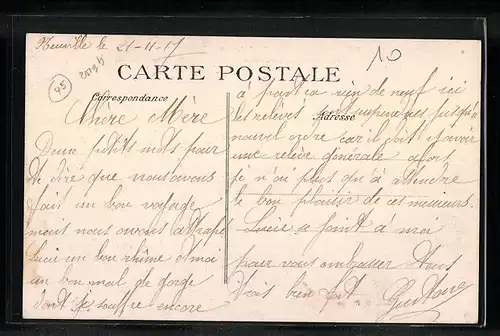 Neuville le 21-11-17
10
45
CARTE POSTALE
Correspondance
Adresse
Chère Mère
Deux petits mots pour
te dire que nous avons
fait un bon voyage
mais nous avons attrapé
Lucie un bon rhume et moi
un bon mal de gorge
dont je souffre encore
à part ça rien de neuf ici
les relèves sont jusqu'à
nouvel ordre car il doit y avoir
une relève générale alors
je n'ai plus qu'à attendre
le bon plaisir de ces messieurs.
Lucie se joint à moi
pour vous embrasser tous
bien fort. Gustave